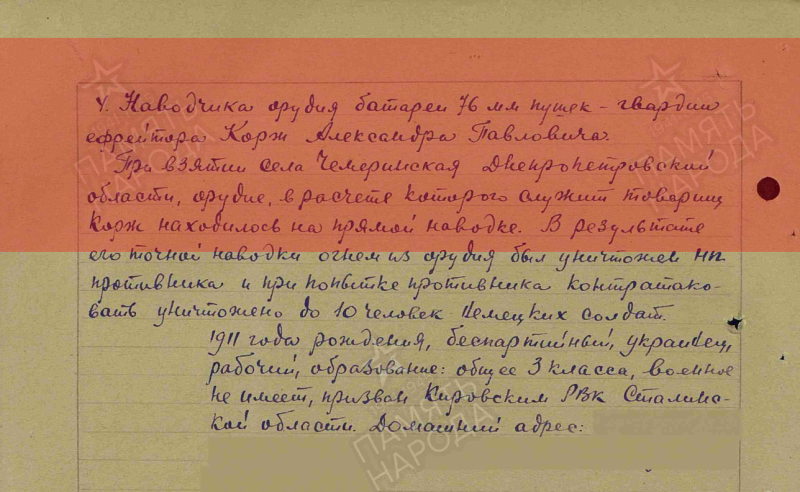 4. Наводчика орудия батареи 76 мм пушек - гвардии
ефрейтора Корж Александра Павловича.
При взятии села Чемеринская Днепропетровской
области, орудие, в расчете которого служит товарищ
Корж находилось на прямой наводке. В результате
его точной наводки огнем из орудия был уничтожен НП
противника и при попытке противника контратако-
вать уничтожено до 10 человек немецких солдат.
1911 года рождения, беспартийный, украинец,
рабочий, образование: общее 3 класса, военное
не имеет, призван Кировским РВК Сталинс-
кой области. Домашний адрес:
ПАМЯТЬ
НАРОДА
ПАМЯТЬ
НАРОДА
ПАМЯТЬ
НАРОДА